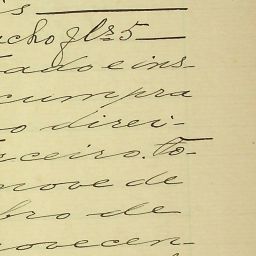 is
acho fls 5
tado e ins-
cumpra
o direi-
rceiro. To-
nove de
bro de
novecen-